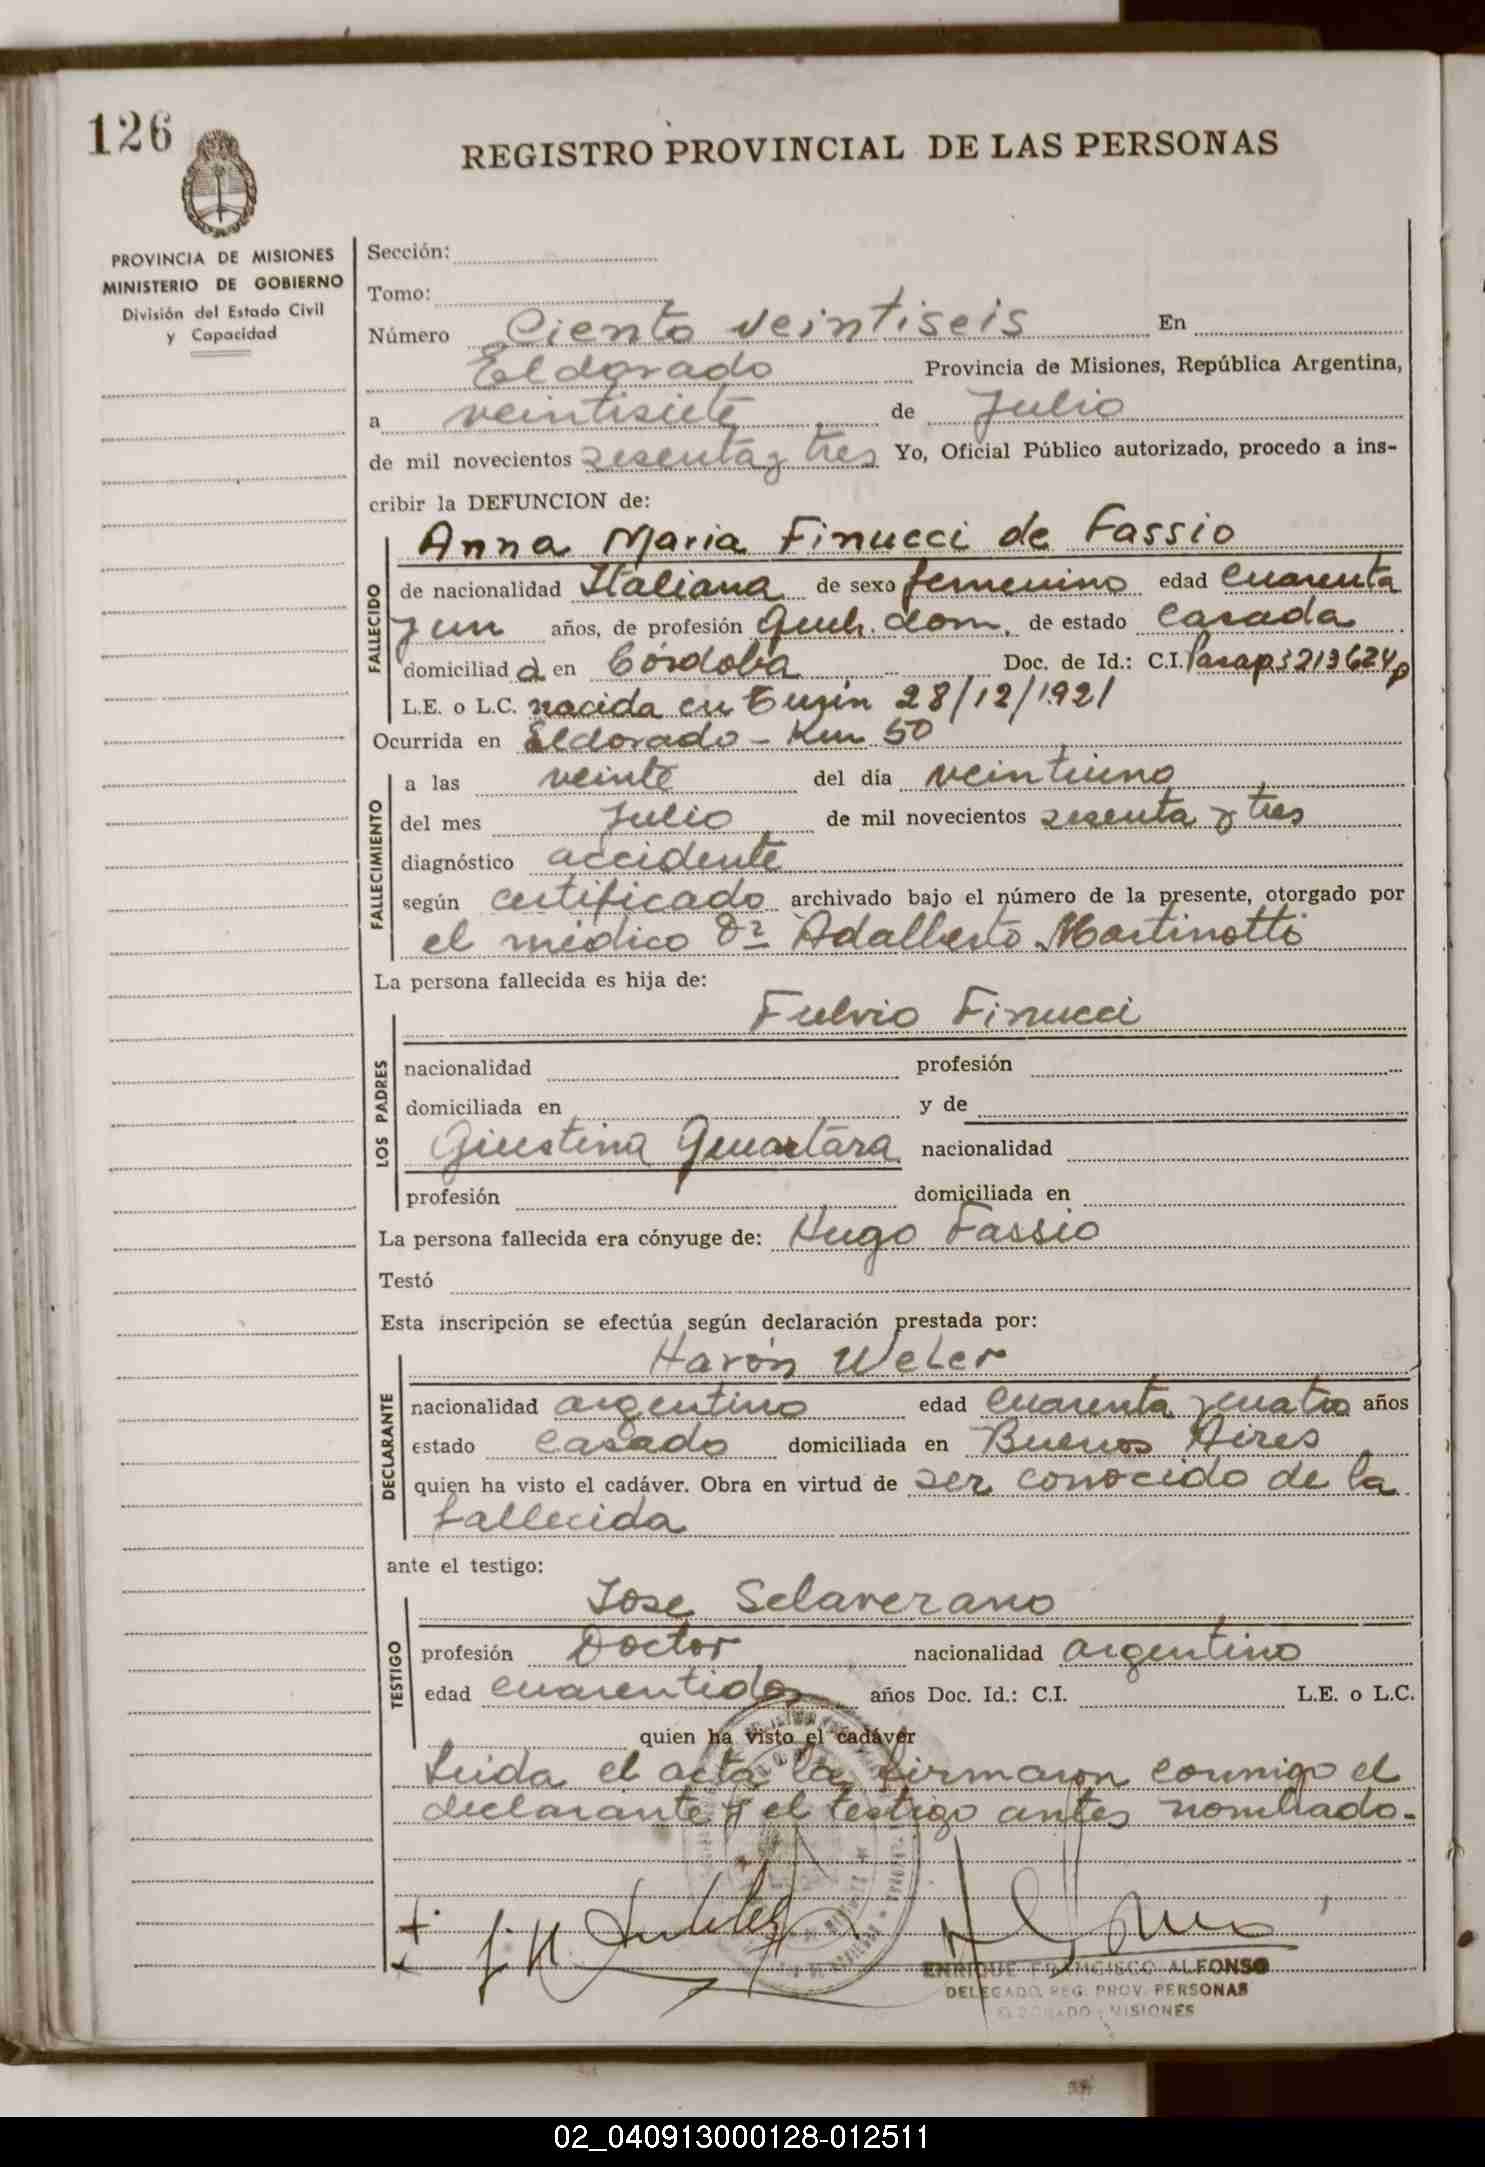 126
REGISTRO PROVINCIAL DE LAS PERSONAS
PROVINCIA DE MISIONES
MINISTERIO DE GOBIERNO
División del Estado Civil
y Capacidad
Sección:
Tomo:
Número Ciento veintiseis En
Eldorado Provincia de Misiones, República Argentina,
a veintisiete de Julio
de mil novecientos sesenta y tres Yo, Oficial Público autorizado, procedo a ins-
cribir la DEFUNCION de:
FALLECIDO
Anna Maria Finucci de Fassio
de nacionalidad Italiana de sexo femenino edad cuarenta
y un años, de profesión Queh. dom. de estado casada
domiciliad a en Córdoba Doc. de Id.: C.I. Pasap 3213624p
L.E. o L.C. nacida en Turín 28/12/1921
Ocurrida en Eldorado - Km 50
FALLECIMIENTO
a las veinte del día veintiuno
del mes Julio de mil novecientos sesenta y tres
diagnóstico accidente
según certificado archivado bajo el número de la presente, otorgado por
el médico Dr Adalberto Martinotti
La persona fallecida es hija de:
LOS PADRES
Fulvio Finucci
nacionalidad profesión
domiciliada en y de
Giustina Quartara nacionalidad
profesión domiciliada en
La persona fallecida era cónyuge de: Hugo Fassio
Testó
Esta inscripción se efectúa según declaración prestada por:
DECLARANTE
Harón Weler
nacionalidad argentino edad cuarenta y cuatro años
estado casado domiciliada en Buenos Aires
quien ha visto el cadáver. Obra en virtud de ser conocido de la
fallecida
ante el testigo:
TESTIGO
Jose Selaverano
profesión Doctor nacionalidad argentino
edad cuarentidos años Doc. Id.: C.I. L.E. o L.C.
quien ha visto el cadáver
Leida el acta la firmaron conmigo el
declarante y el testigo antes nombrado.
ENRIQUE FRANCISCO ALFONSO
DELEGADO REG. PROV. PERSONAS
ELDORADO - MISIONES
02_040913000128-012511